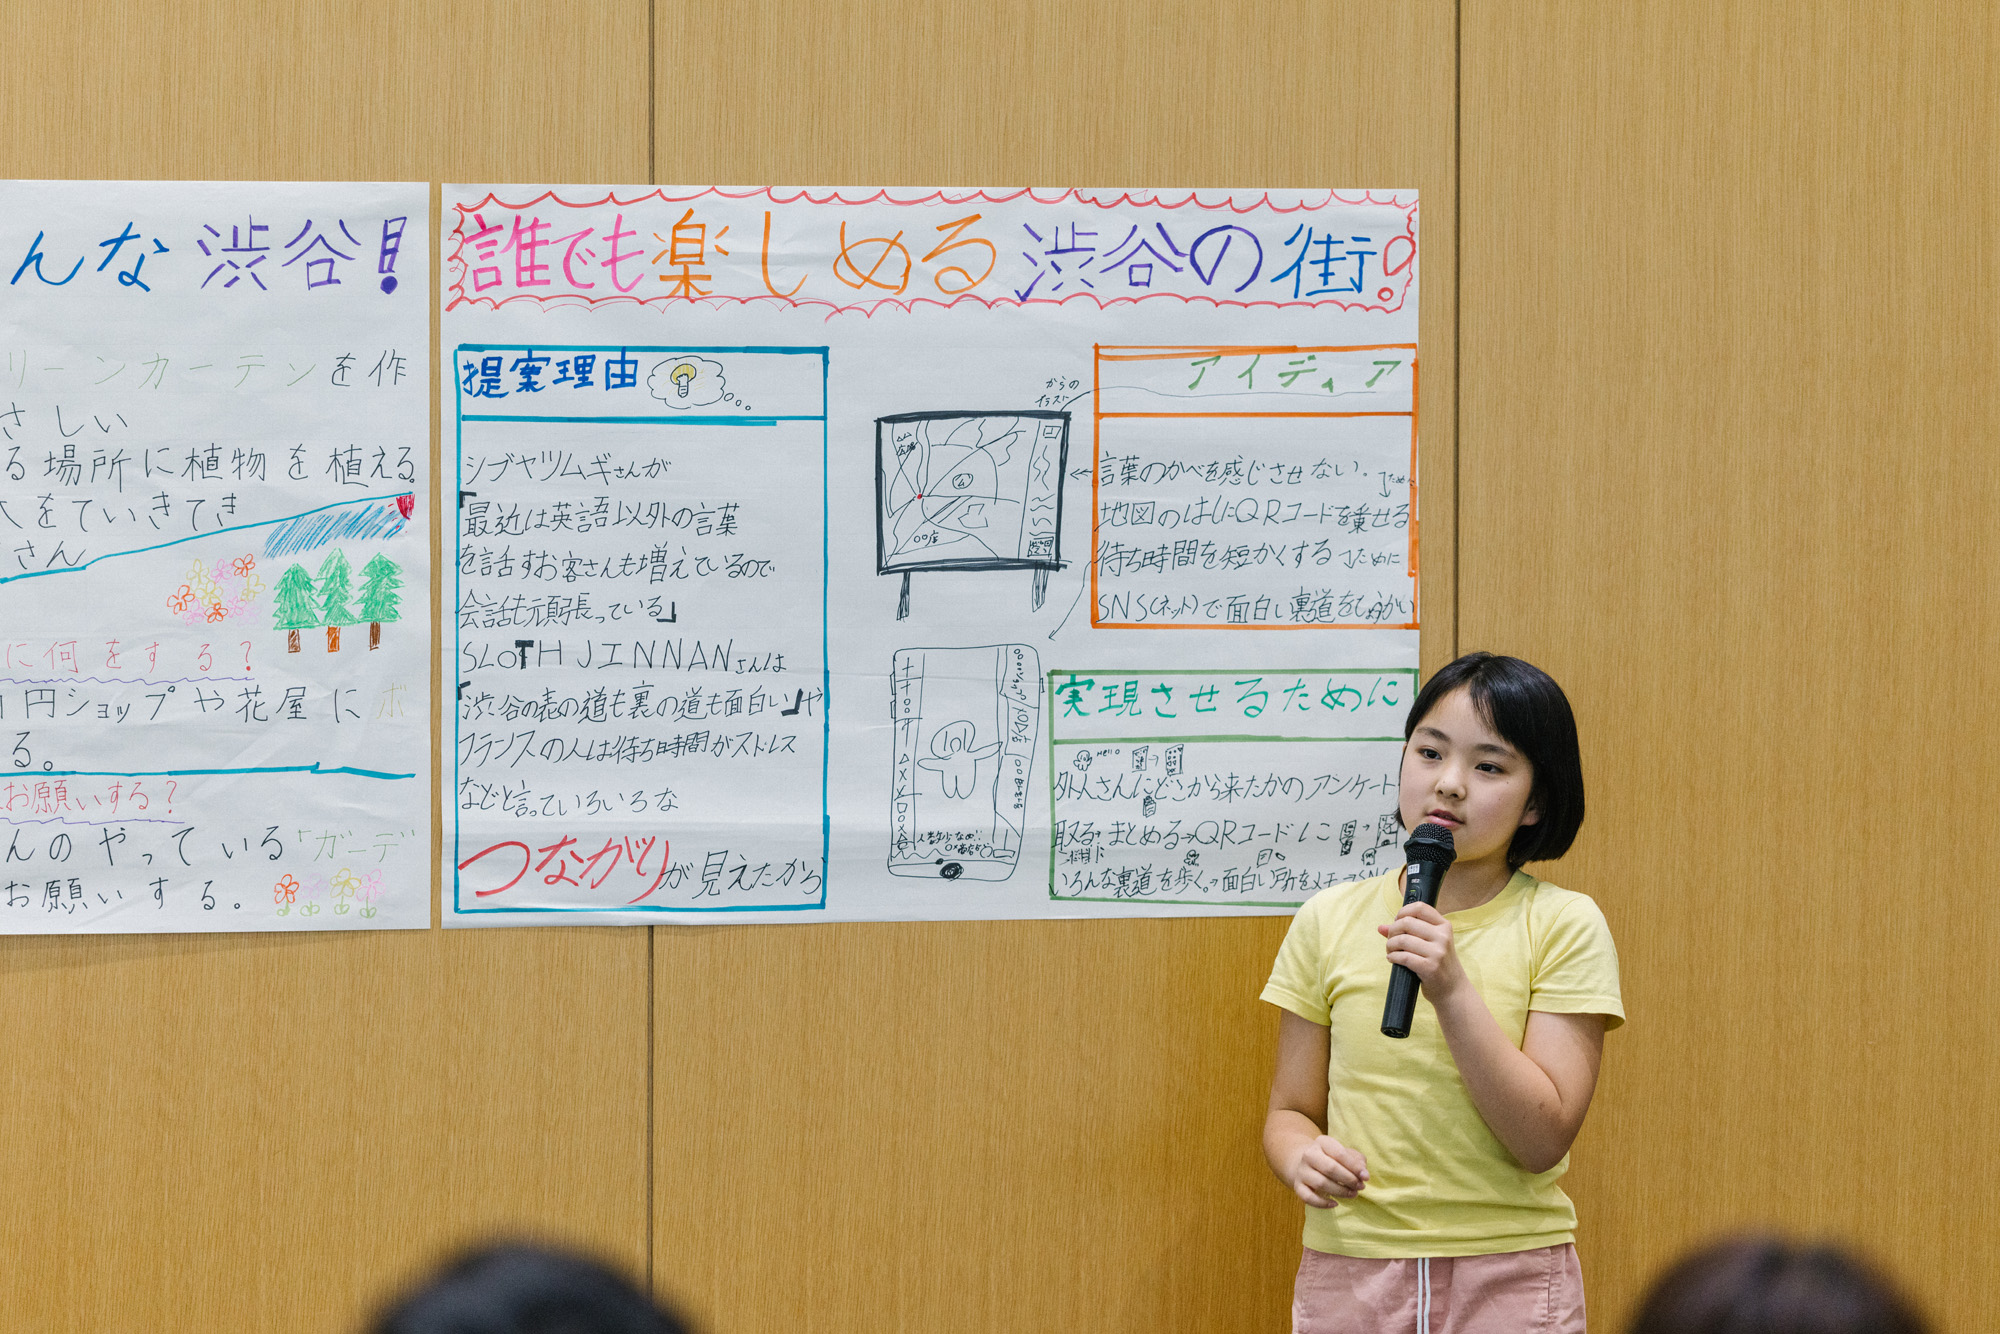 んな渋谷!
リーンカーテンを作
さしい
る場所に植物を植える。
をていきてき
さん
に何をする?
円ショップや花屋にポ
る。
お願いする?
んのやっている「ガーデ
お願いする。
誰でも楽しめる渋谷の街!
提案理由
シブヤツムギさんが
「最近は英語以外の言葉
を話すお客さんも増えているので
会話も頑張っている」
SLOTH JINNANさんは
「渋谷の表の道も裏の道も面白い」や
フランスの人は待ち時間がストレス
などと言っていろいろな
つながりが見えたから
アイディア
言葉のかべを感じさせない。ために
地図のはしにQRコードを乗せる
待ち時間を短かくするために
SNS(ネット)で面白い裏道をしょうかい
からの
イラスト
広場
○○店
実現させるために
Hello
外人さんにどこから来たかのアンケート
取る→まとめる→QRコードに
いろんな裏道を歩く。→面白い所をメモ→SNS